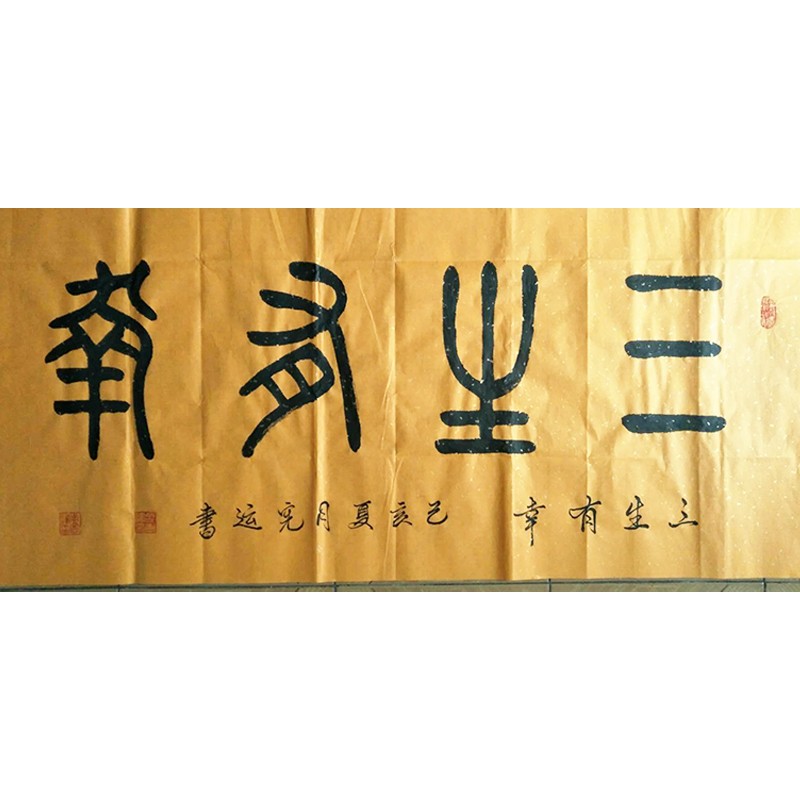 三生有幸
三生有幸 己亥夏月宪运书